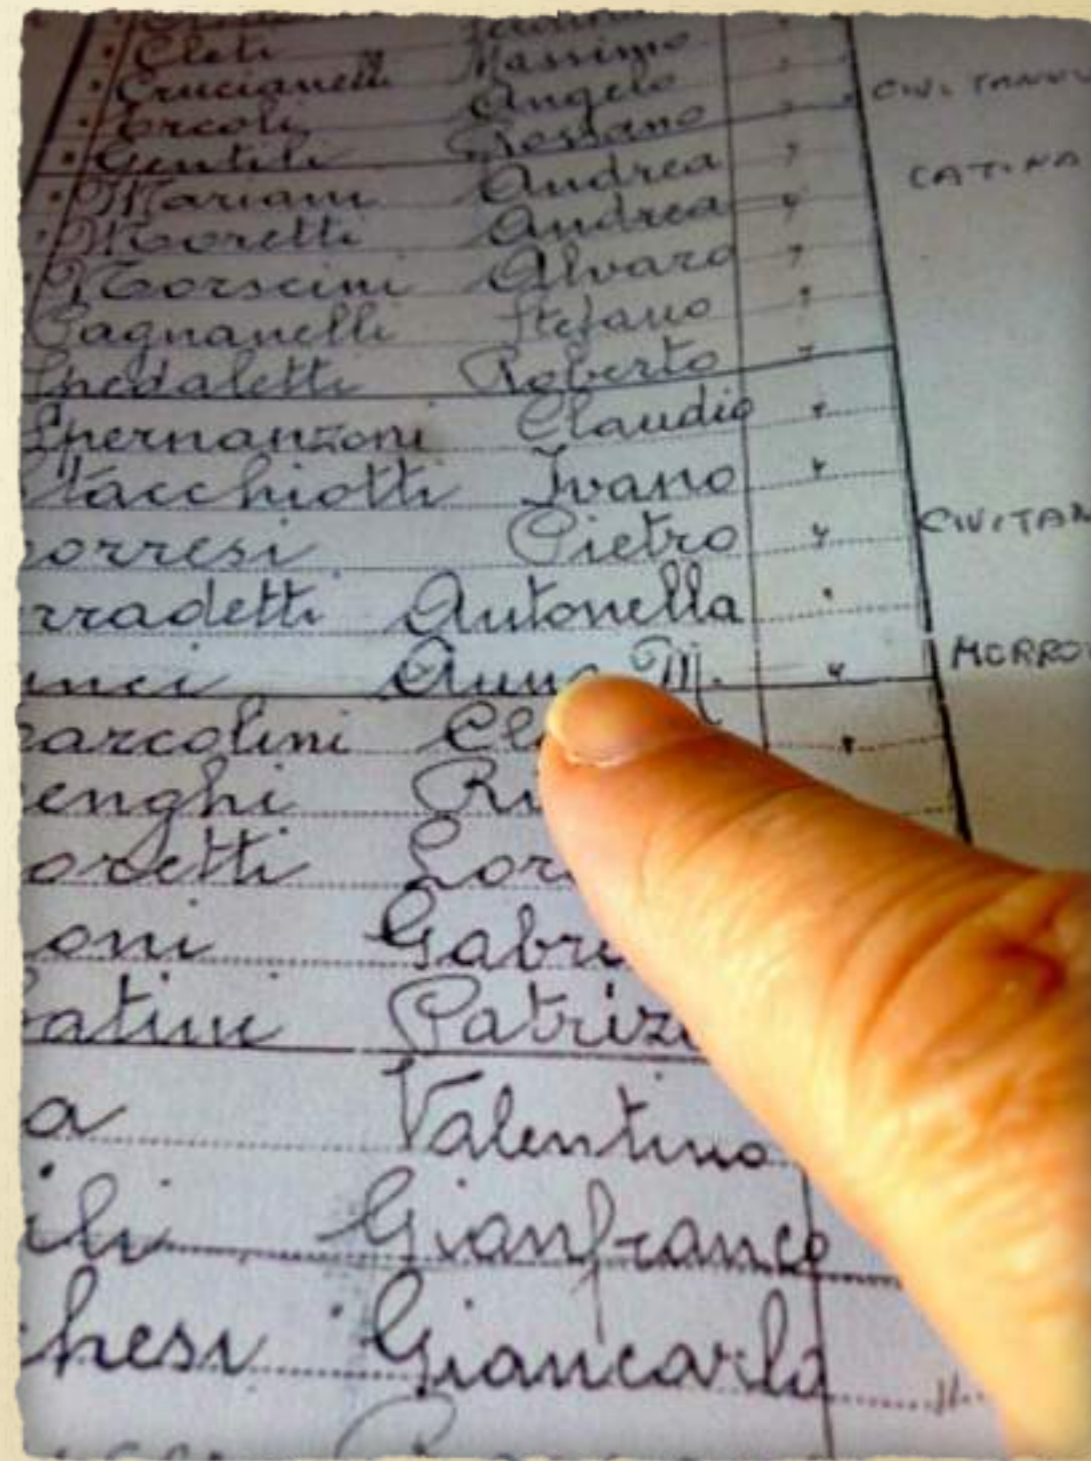 Cleti Massimo
Crucianelli Angelo CIVITANOV
Ercoli Rossano
Gentili Andrea CATINA
Mariani Andrea
Moretti Alvaro
Morscini Stefano
Pagnanelli Roberto
Spedaletti Claudio
Spernanzoni Ivano
Stacchiotti Pietro CIVITAN
orresi Antonella
rradetti Anna M. MORRO
unci Cl
arcolini Ri
enghi Lor
orsetti Gabri
oni Patrizi
batini Valentino
a Gianfranco
ili Giancarlo
hesi